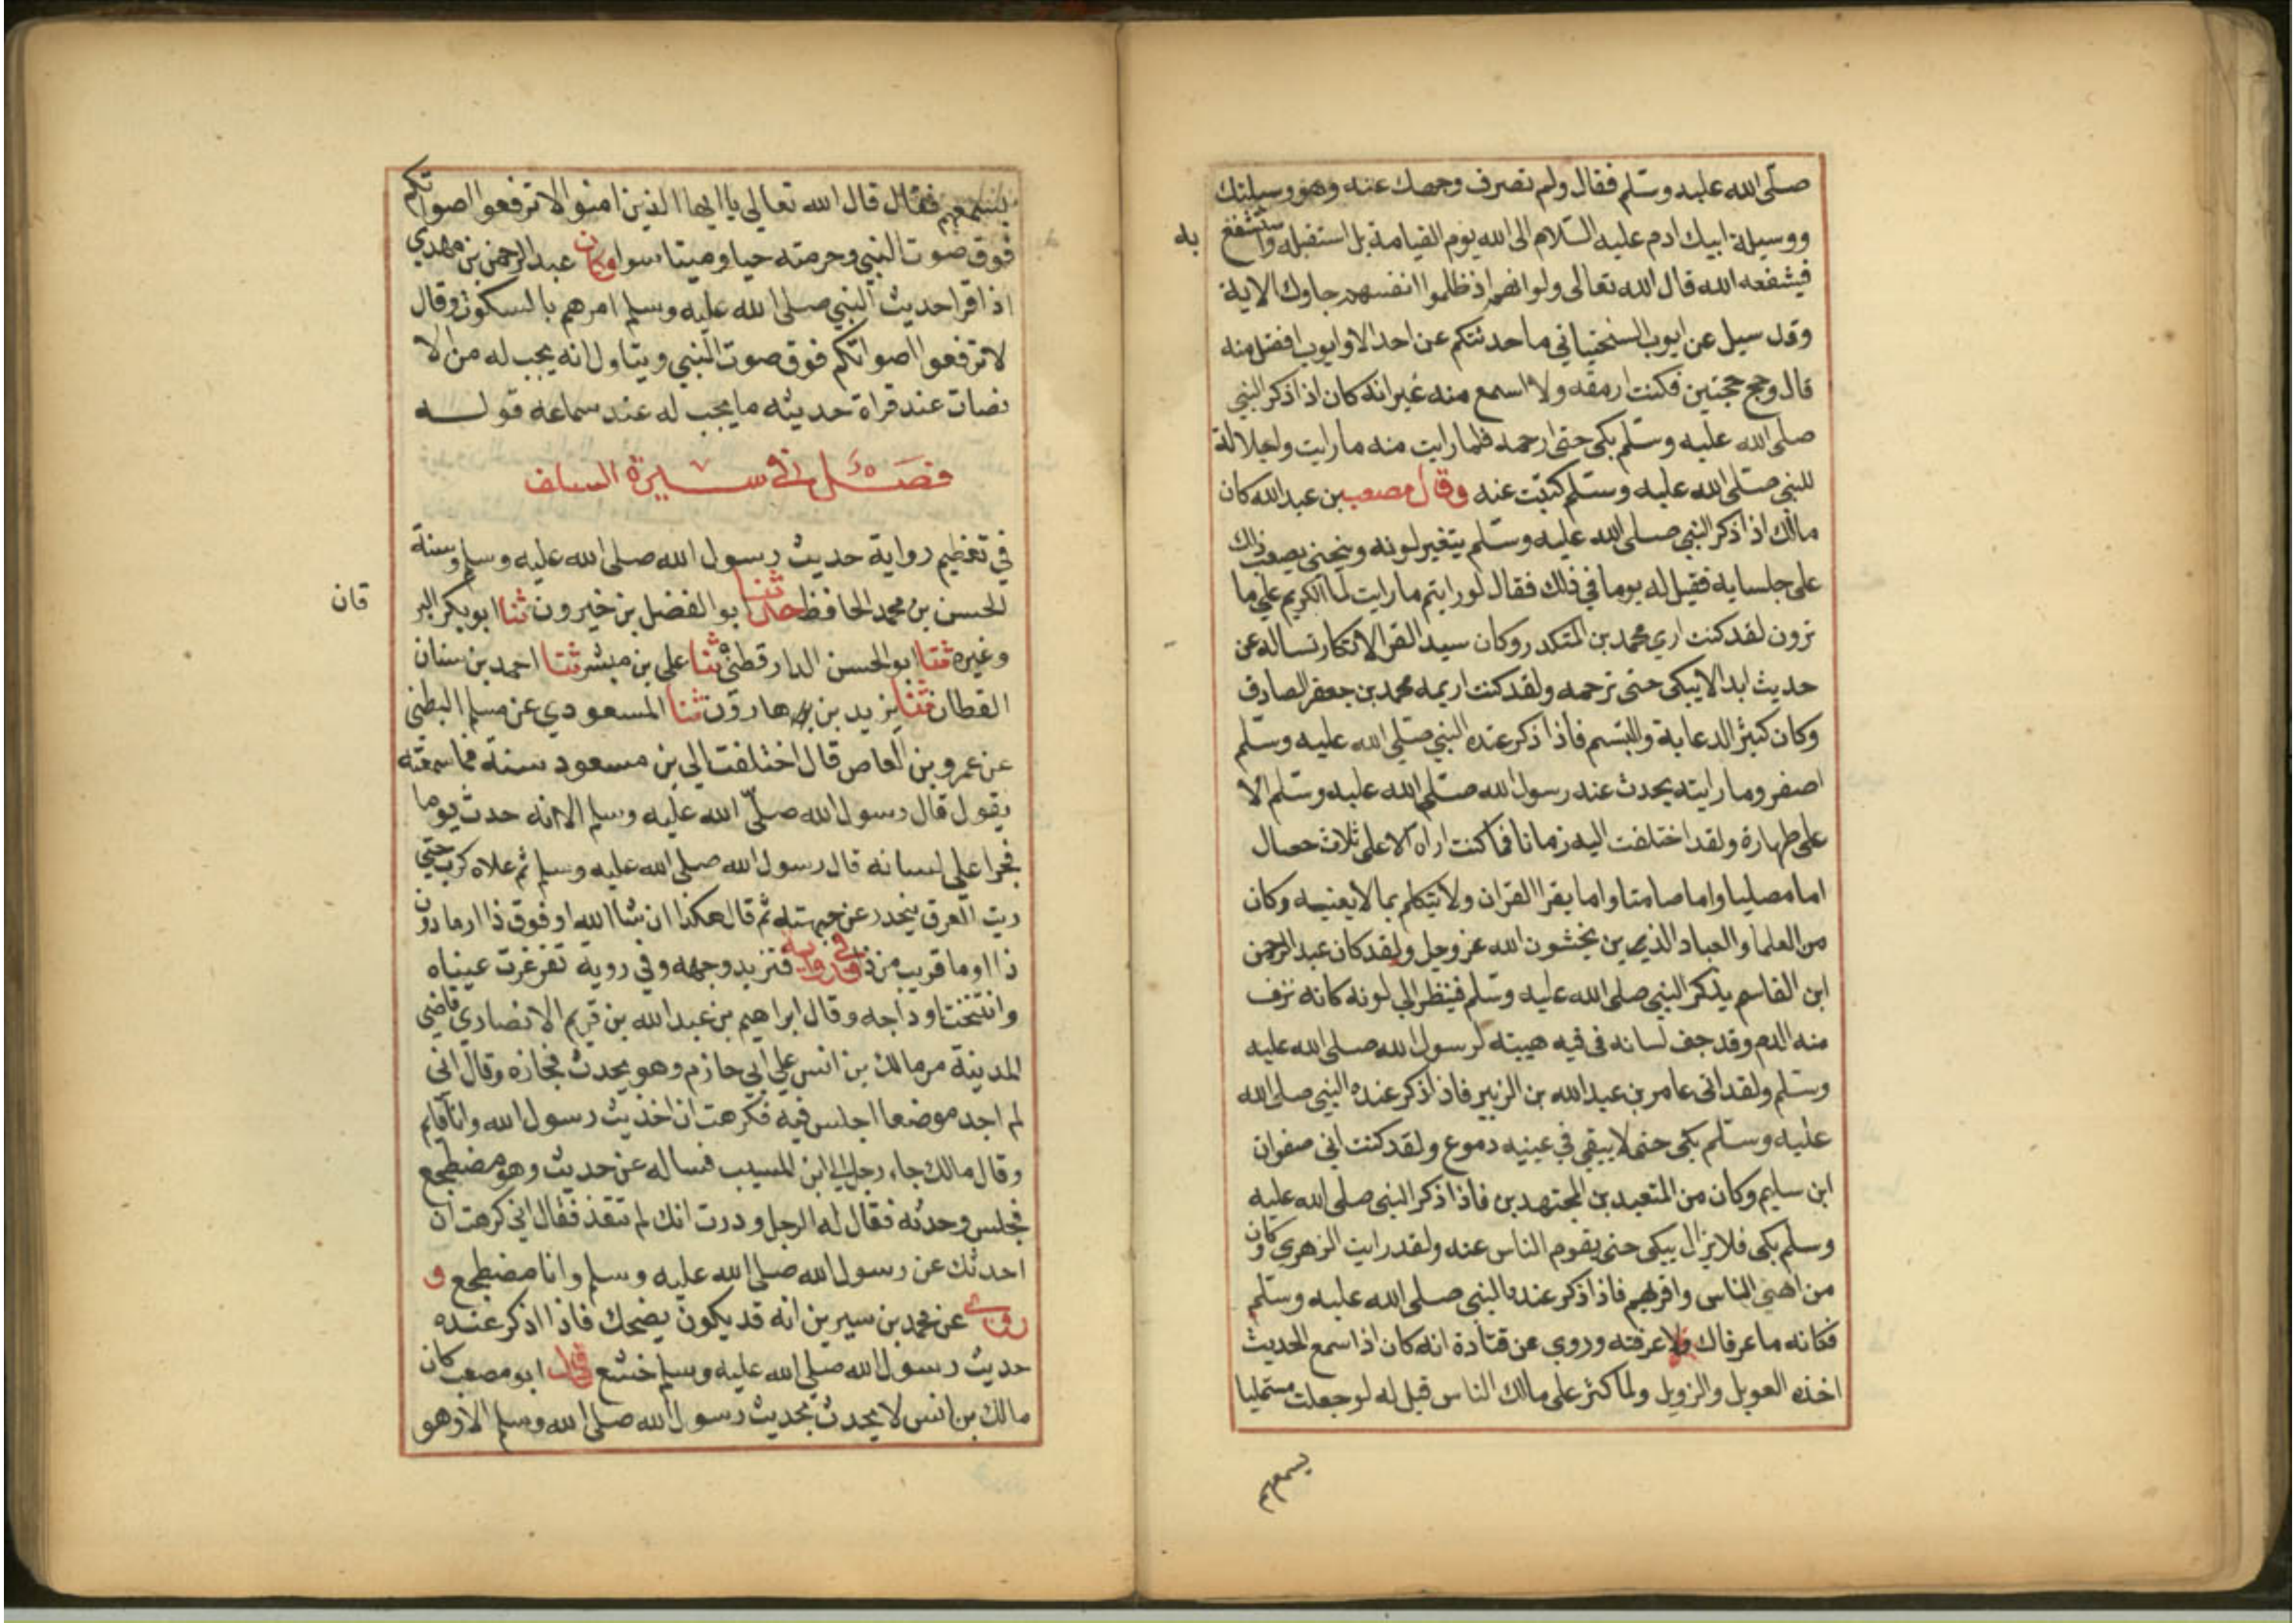 صلى الله عليه وسلم فقال ولم تصرف وجهك عنه وهو وسيلتك
ووسيلة ابيك ادم عليه السلام الى الله يوم القيامة بل استقبله واستشفع
به
فيشفعه الله قال الله تعالى ولو انهم اذ ظلموا انفسهم جاوك الاية
وقد سيل عن ايوب السختياني ما حدثتكم عن احد الا وايوب افضل منه
قال وحج حجتين فكنت ارمقه ولا اسمع منه غير انه كان اذا ذكر النبي
صلى الله عليه وسلم بكى حتى ارحمه فلما رايت منه ما رايت واجلالة
للنبي صلى الله عليه وسلم كتبت عنه وقال مصعب بن عبد الله كان
مالك اذا ذكر النبي صلى الله عليه وسلم يتغير لونه وينحني يصعب ذلك
على جلسايه فقيل له يوما في ذلك فقال لو رايتم ما رايت لما انكرتم علي ما
ترون لقد كنت اري محمد بن المنكدر وكان سيد القرا لا نكاد نساله عن
حديث ابدا الا يبكى حتى نرحمه ولقد كنت اري محمد بن جعفر الصادق
وكان كثير الدعابة والتبسم فاذا ذكر عنده النبي صلى الله عليه وسلم
اصفر وما رايته يحدث عند رسول الله صلى الله عليه وسلم الا
على طهارة ولقد اختلفت اليه زمانا فما كنت اراه الا على ثلاث خصال
اما مصليا واما صامتا واما يقرا القران ولا يتكلم بما لا يعنيه وكان
من العلما والعباد الذين يخشون الله عز وجل ولقد كان عبد الرحمن
ابن القاسم يذكر النبي صلى الله عليه وسلم فينظر الى لونه كانه نزف
منه الدم وقد جف لسانه في فيه هيبته لرسول الله صلى الله عليه
وسلم ولقد اتى عامر بن عبد الله بن الزبير فاذا ذكر عنده النبي صلى الله
عليه وسلم بكى حتى لا يبقى في عينيه دموع ولقد كنت اتي صفوان
ابن سليم وكان من المتعبدين المجتهدين فاذا ذكر النبي صلى الله عليه
وسلم بكى فلا يزال يبكى حتى يقوم الناس عنه ولقد رايت الزهري وكان
من اهنى الناس واقربهم فاذا ذكر عنده النبي صلى الله عليه وسلم
فكانه ما عرفك ولا عرفته وروي عن قتادة انه كان اذا سمع الحديث
اخذه العويل والزويل ولما كثر على مالك الناس قيل له لو جعلت مستمليا
يسمعهم
يسمعهم فقال قال الله تعالى يا ايها الذين امنوا لا ترفعوا اصواتكم
فوق صوت النبي وحرمته حيا وميتا سوا وكان عبد الرحمن بن مهدي
اذا قرا حديث النبي صلى الله عليه وسلم امرهم بالسكوت وقال
لا ترفعوا اصواتكم فوق صوت النبي ويتاول انه يجب له من الا
نصات عند قراة حديثه ما يجب له عند سماعه قوله
فصل في سيرة السلف
في تعظيم رواية حديث رسول الله صلى الله عليه وسلم وسنة
الحسن بن محمد الحافظ حدثنا ابو الفضل بن خيرون ثنا ابو بكر البر
قان
وغيره ثنا ابو الحسن الدارقطني ثنا علي بن مبشر ثنا احمد بن سنان
القطان ثنا يزيد بن هارون ثنا المسعودي عن مسلم البطني
عن عمرو بن العاص قال اختلفت الى بن مسعود سنة فما سمعته
يقول قال رسول الله صلى الله عليه وسلم الا انه حدث يوما
فجرا على لسانه قال رسول الله صلى الله عليه وسلم ثم علاه كرب حتى
ريت العرق ينحدر عن جبهته ثم قال هكذا ان شا الله او فوق ذا او ما دون
ذا او ما قريب من ذا وفي رواية فتزبد وجهه وفي روية تغرغرت عيناه
وانتفخت اوداجه وقال ابراهيم بن عبد الله بن قريم الانصاري قاضي
المدينة مر مالك بن انس على ابي حازم وهو يحدث فجازه وقال اني
لم اجد موضعا اجلس فيه فكرهت ان اخذ حديث رسول الله وانا قايم
وقال مالك جاء رجل الى ابن المسيب فساله عن حديث وهو مضطجع
فجلس وحدثه فقال له الرجل ودرت انك لم تتعذ فقال اني كرهت ان
احدثك عن رسول الله صلى الله عليه وسلم وانا مضطجع و
روي عن محمد بن سيرين انه قد يكون يضحك فاذا اذكر عنده
حديث رسول الله صلى الله عليه وسلم خشع قال ابو مصعب كان
مالك بن انس لا يحدث بحديث رسول الله صلى الله وسلم الا وهو